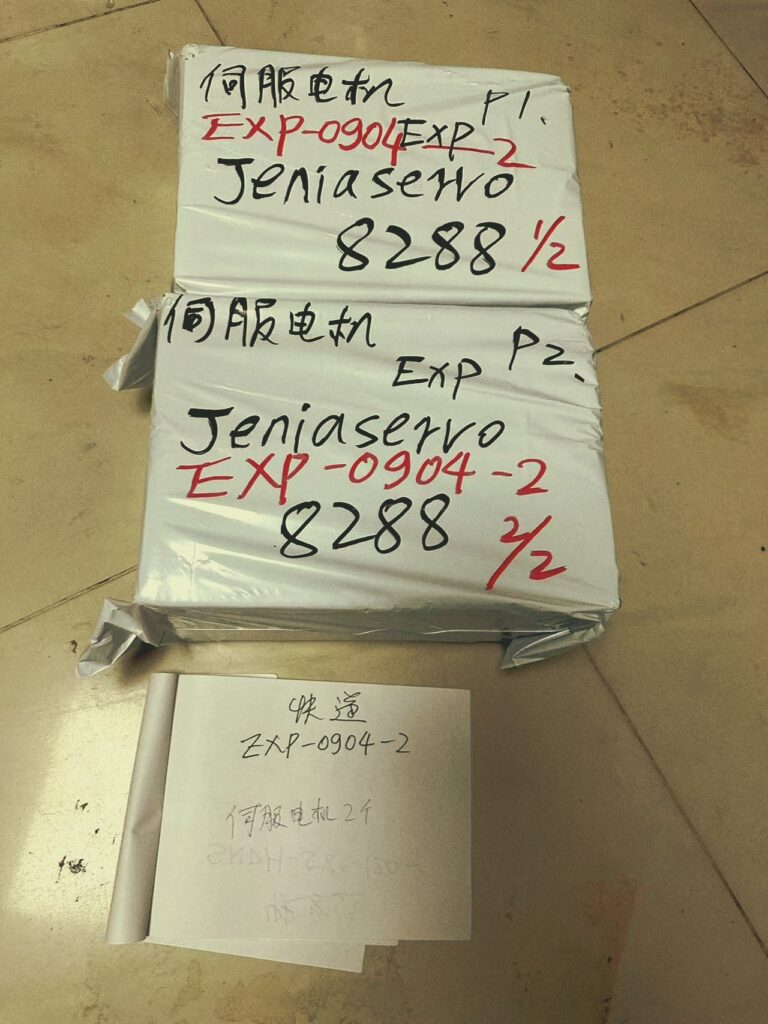 伺服电机 P1.
EXP-0904 EXP -2
Jeniaservo
8288 1/2
伺服电机 P2.
EXP
Jeniaservo
EXP-0904-2
8288 2/2
快道
EXP-0904-2
伺服电机2个